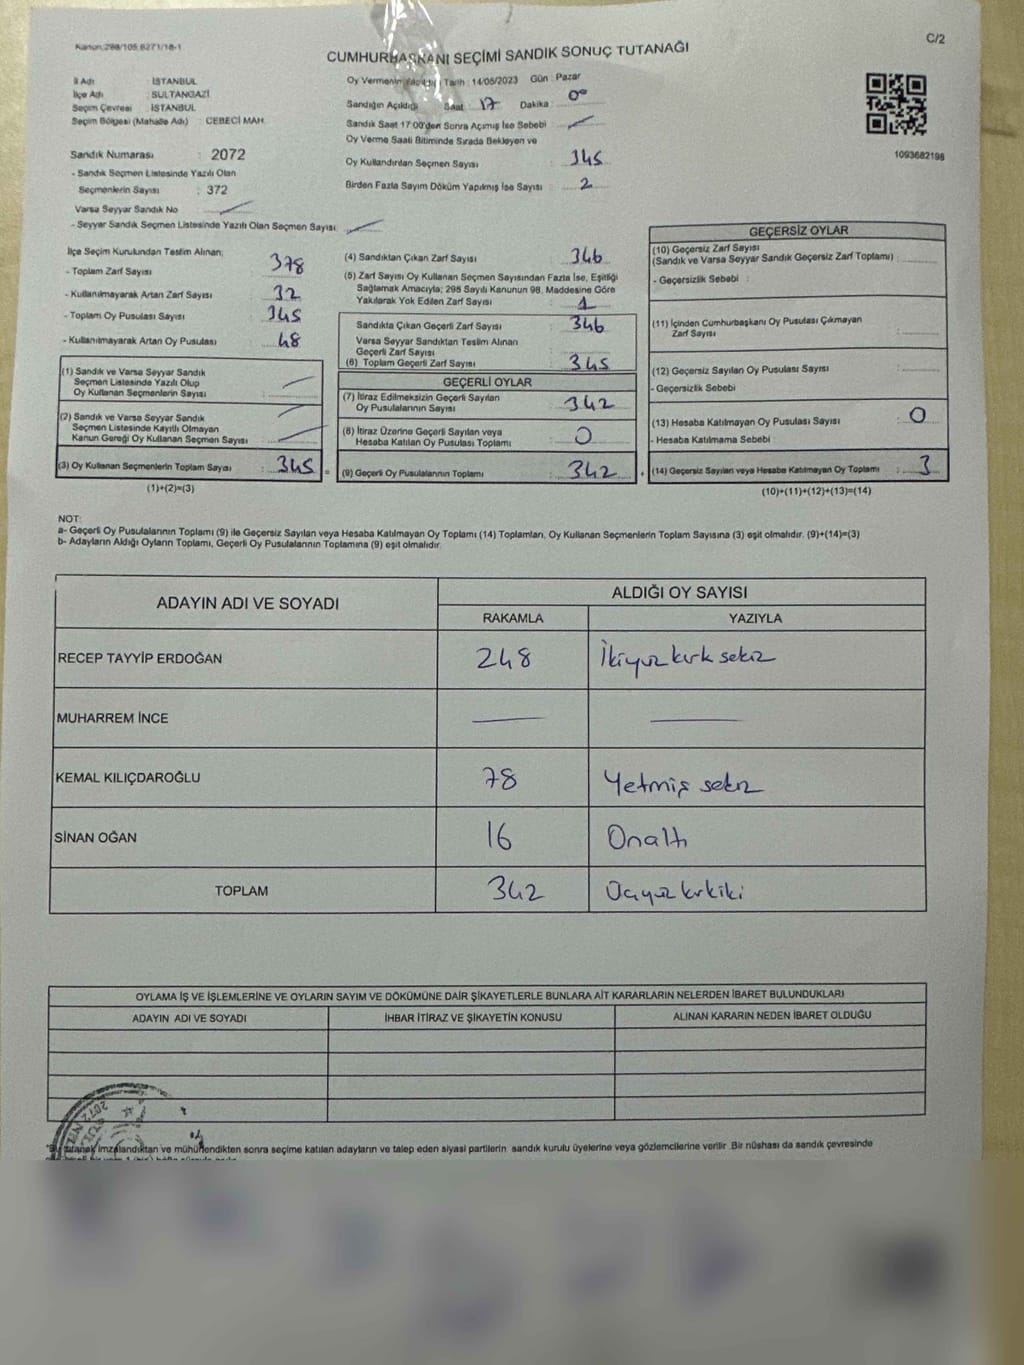 Kanun:298/105,6271/18-1
C/2
CUMHURBAŞKANI SEÇİMİ SANDIK SONUÇ TUTANAĞI
İl Adı : İSTANBUL
İlçe Adı : SULTANGAZİ
Seçim Çevresi : İSTANBUL
Seçim Bölgesi (Mahalle Adı) : CEBECİ MAH.
Sandık Numarası : 2072
- Sandık Seçmen Listesinde Yazılı Olan
Seçmenlerin Sayısı : 372
Varsa Seyyar Sandık No
- Seyyar Sandık Seçmen Listesinde Yazılı Olan Seçmen Sayısı
Oy Vermenin Yapıldığı Tarih : 14/05/2023 Gün : Pazar
Sandığın Açıldığı Saat 17 Dakika : 00
Sandık Saat 17:00'den Sonra Açımış İse Sebebi
Oy Verme Saati Bitiminde Sırada Bekleyen ve
Oy Kullandırılan Seçmen Sayısı : 345
Birden Fazla Sayım Döküm Yapılmış İse Sayısı : 2
1093682198
İlçe Seçim Kurulundan Teslim Alınan;
- Toplam Zarf Sayısı : 378
- Kullanılmayarak Artan Zarf Sayısı : 32
- Toplam Oy Pusulası Sayısı : 345
- Kullanılmayarak Artan Oy Pusulası : 48
(1) Sandık ve Varsa Seyyar Sandık
Seçmen Listesinde Yazılı Olup
Oy Kullanan Seçmenlerin Sayısı :
(2) Sandık ve Varsa Seyyar Sandık
Seçmen Listesinde Kayıtlı Olmayan
Kanun Gereği Oy Kullanan Seçmen Sayısı :
(3) Oy Kullanan Seçmenlerin Toplam Sayısı : 345
(1)+(2)=(3)
(4) Sandıktan Çıkan Zarf Sayısı : 346
(5) Zarf Sayısı Oy Kullanan Seçmen Sayısından Fazla İse, Eşitliği
Sağlamak Amacıyla; 298 Sayılı Kanunun 98. Maddesine Göre
Yakılarak Yok Edilen Zarf Sayısı : 1
Sandıkta Çıkan Geçerli Zarf Sayısı : 346
Varsa Seyyar Sandıktan Teslim Alınan
Geçerli Zarf Sayısı :
(6) Toplam Geçerli Zarf Sayısı : 345
GEÇERLİ OYLAR
(7) İtiraz Edilmeksizin Geçerli Sayılan
Oy Pusulalarının Sayısı : 342
(8) İtiraz Üzerine Geçerli Sayılan veya
Hesaba Katılan Oy Pusulası Toplamı : 0
(9) Geçerli Oy Pusulalarının Toplamı : 342
GEÇERSİZ OYLAR
(10) Geçersiz Zarf Sayısı
(Sandık ve Varsa Seyyar Sandık Geçersiz Zarf Toplamı) :
- Geçersizlik Sebebi :
(11) İçinden Cumhurbaşkanı Oy Pusulası Çıkmayan
Zarf Sayısı :
(12) Geçersiz Sayılan Oy Pusulası Sayısı :
- Geçersizlik Sebebi
(13) Hesaba Katılmayan Oy Pusulası Sayısı : 0
- Hesaba Katılmama Sebebi
(14) Geçersiz Sayılan veya Hesaba Katılmayan Oy Toplamı : 3
(10)+(11)+(12)+(13)=(14)
NOT:
a- Geçerli Oy Pusulalarının Toplamı (9) ile Geçersiz Sayılan veya Hesaba Katılmayan Oy Toplamı (14) Toplamları, Oy Kullanan Seçmenlerin Toplam Sayısına (3) eşit olmalıdır. (9)+(14)=(3)
b- Adayların Aldığı Oyların Toplamı, Geçerli Oy Pusulalarının Toplamına (9) eşit olmalıdır.
ADAYIN ADI VE SOYADI
ALDIĞI OY SAYISI
RAKAMLA YAZIYLA
RECEP TAYYİP ERDOĞAN 248 İkiyüz kırk sekiz
MUHARREM İNCE
KEMAL KILIÇDAROĞLU 78 Yetmiş sekiz
SİNAN OĞAN 16 Onaltı
TOPLAM 342 Üçyüz kırkiki
OYLAMA İŞ VE İŞLEMLERİNE VE OYLARIN SAYIM VE DÖKÜMÜNE DAİR ŞİKAYETLERLE BUNLARA AİT KARARLARIN NELERDEN İBARET BULUNDUKLARI
ADAYIN ADI VE SOYADI İHBAR İTİRAZ VE ŞİKAYETİN KONUSU ALINAN KARARIN NEDEN İBARET OLDUĞU
2072
tutanak imzalandıktan ve mühürlendikten sonra seçime katılan adayların ve talep eden siyasi partilerin sandık kurulu üyelerine veya gözlemcilerine verilir. Bir nüshası da sandık çevresinde